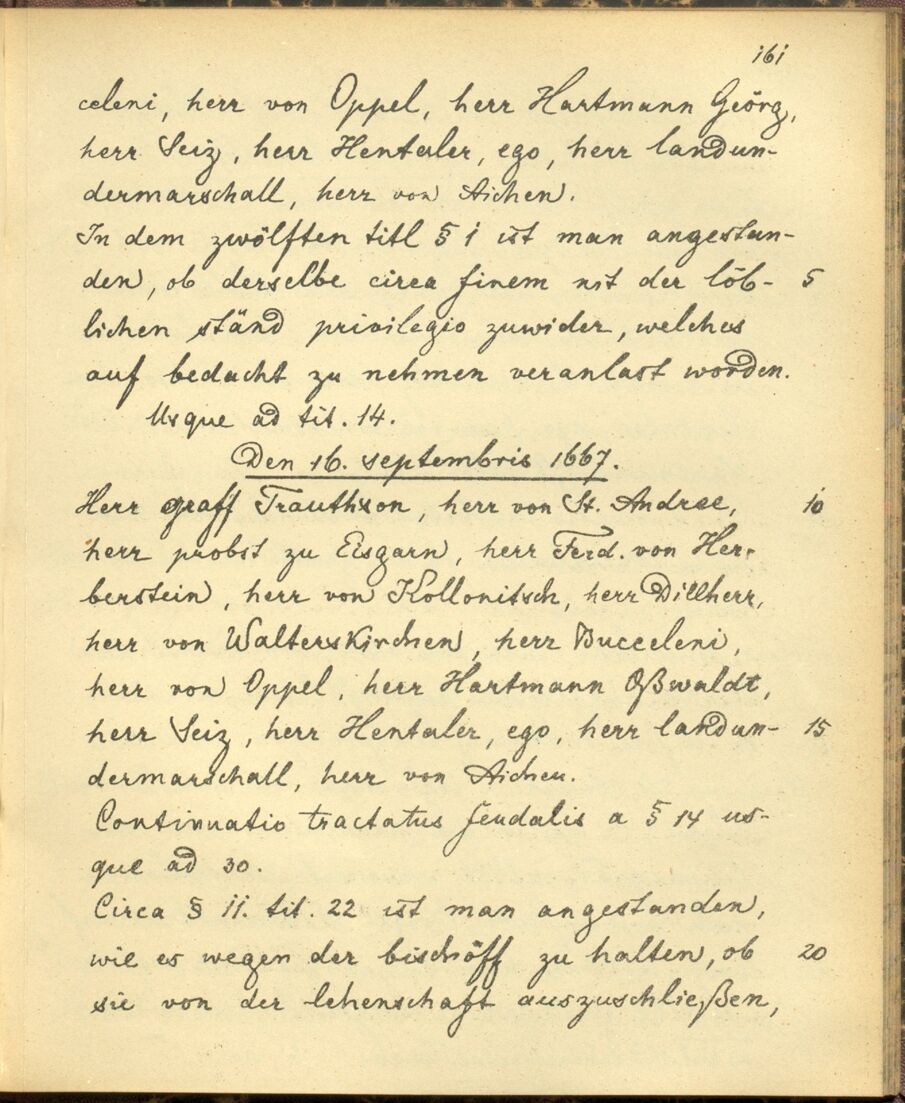 161
celeni, herr von Oppel, herr Hartmann Geörg,
herr Seiz, herr Hentaler, ego, herr landun-
dermarschall, herr von Aichen.
In dem zwölften titl § 1 ist man angestan-
den, ob derselbe circa finem nit der löb- 5
lichen ständ privilegio zuwider, welches
auf bedacht zu nehmen veranlast worden.
Usque ad tit. 14.
Den 16. septembris 1667.
Herr graff Trauthson, herr von St. Andree, 10
herr probst zu Eisgarn, herr Ferd. von Her-
berstein, herr von Kollonitsch, herr Dillherr,
herr von Walterskirchen, herr Bucceleni,
herr von Oppel, herr Hartmann Oßwaldt,
herr Seiz, herr Hentaler, ego, herr landun- 15
dermarschall, herr von Aichen.
Continuatio tractatus feudalis a § 14 us-
que ad 30.
Circa § 11. tit. 22 ist man angestanden,
wie es wegen der bischöff zu halten, ob 20
sie von der lehenschaft auszuschließen,